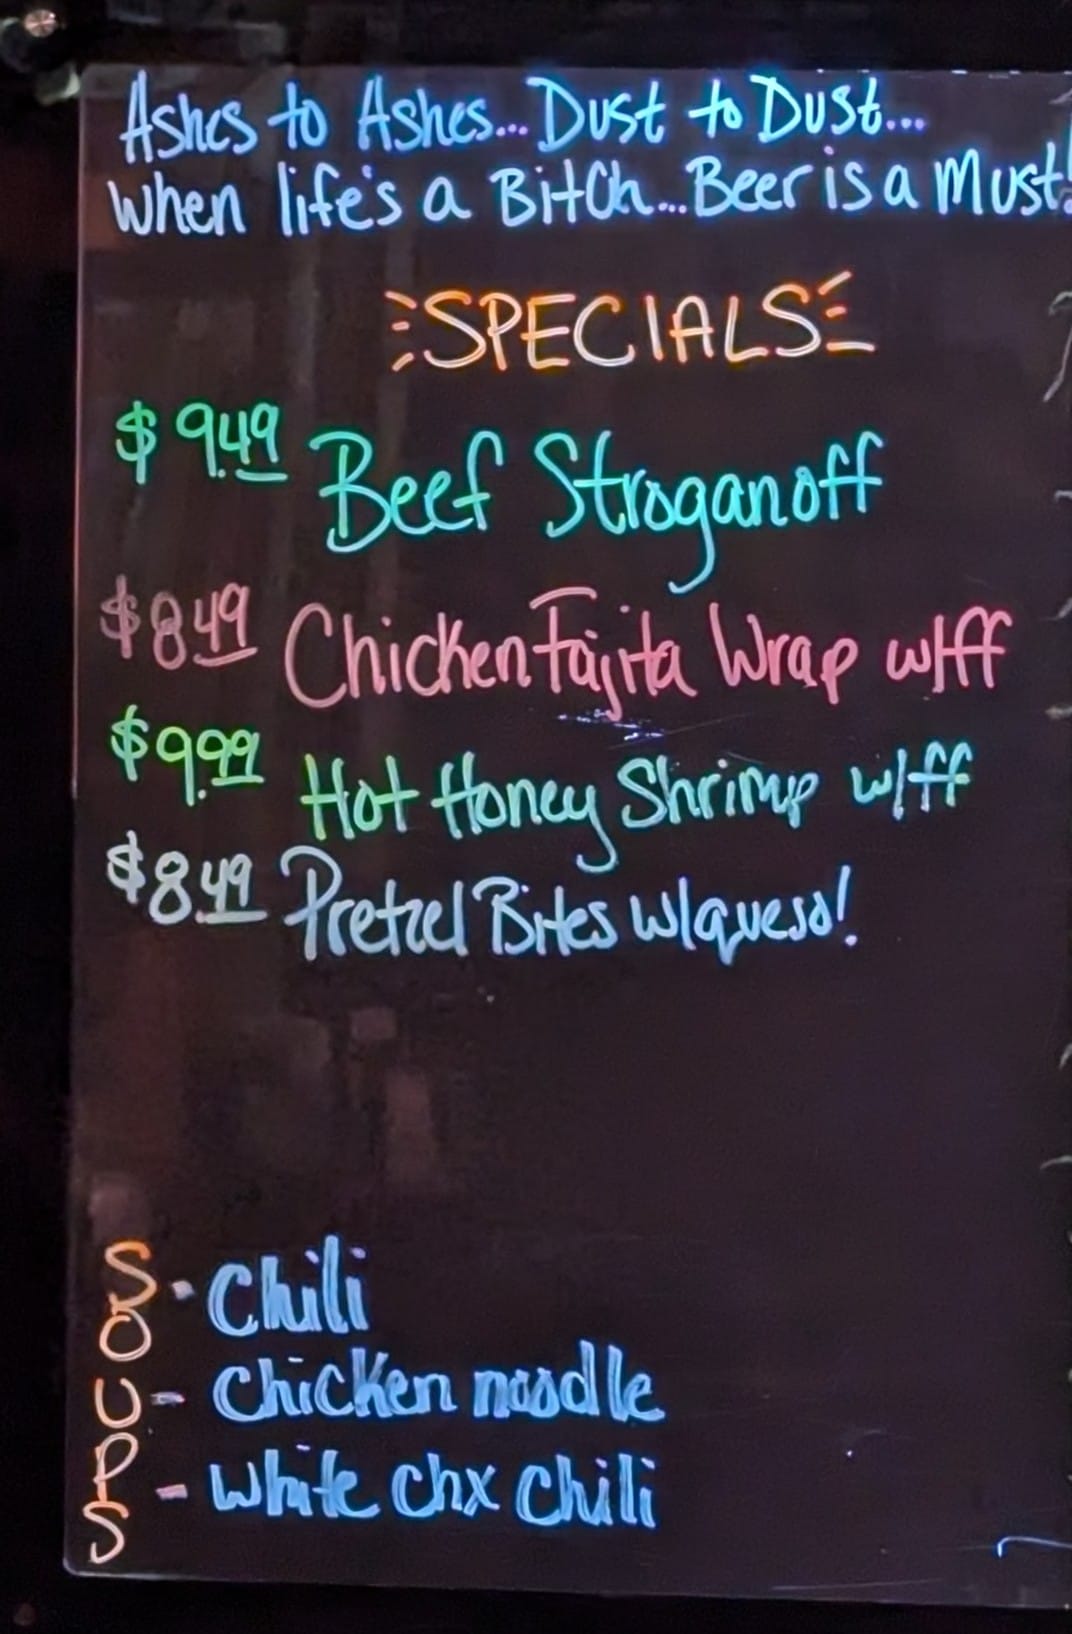 Ashes to Ashes...Dust to Dust...
When life's a Bitch...Beer is a Must!
SPECIALS
$9.49 Beef Stroganoff
$8.49 Chicken Fajita Wrap w/ff
$9.99 Hot Honey Shrimp w/ff
$8.49 Pretzel Bites w/queso!
SOUPS
- Chili
- Chicken noodle
- White chx chili